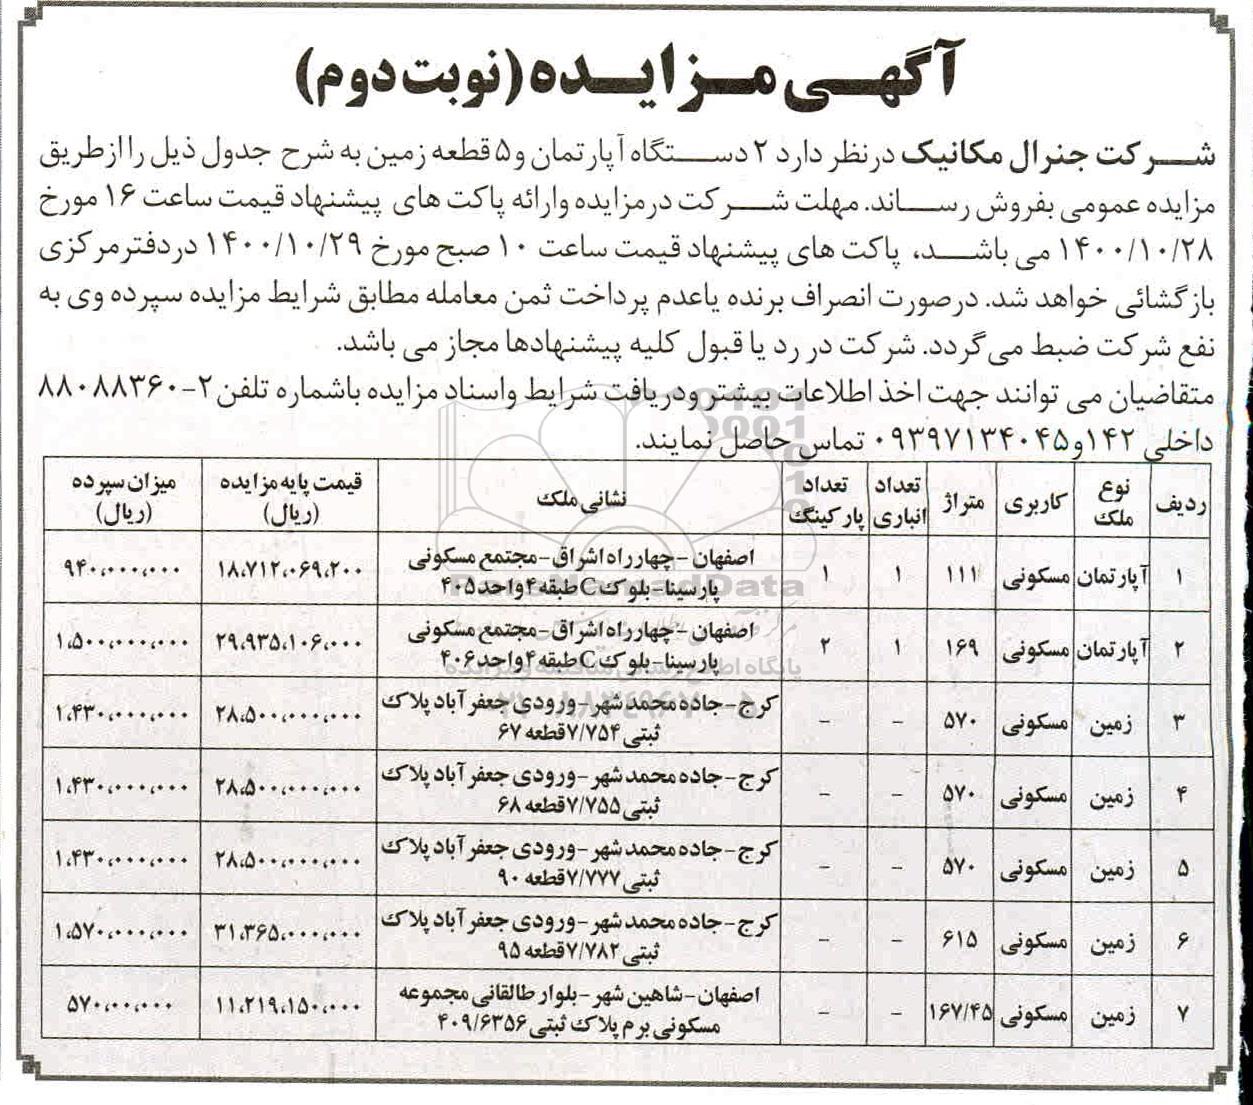 آگهی مزایده (نوبت دوم)
شرکت جنرال مکانیک درنظر دارد ۲ دستگاه آپارتمان و ۵ قطعه زمین به شرح جدول ذیل را ازطریق
مزایده عمومی بفروش رساند. مهلت شرکت درمزایده وارائه پاکت های پیشنهاد قیمت ساعت ۱۶ مورخ
۱۴۰۰/۱۰/۲۸ می باشد، پاکت های پیشنهاد قیمت ساعت ۱۰ صبح مورخ ۱۴۰۰/۱۰/۲۹ دردفترمرکزی
بازگشائی خواهد شد. درصورت انصراف برنده یاعدم پرداخت ثمن معامله مطابق شرایط مزایده سپرده وی به
نفع شرکت ضبط می گردد. شرکت در رد یا قبول کلیه پیشنهادها مجاز می باشد.
متقاضیان می توانند جهت اخذ اطلاعات بیشتر ودریافت شرایط واسناد مزایده باشماره تلفن ۲-۸۸۰۸۸۳۶۰
داخلی ۱۴۲و۰۹۳۹۷۱۳۴۰۴۵ تماس حاصل نمایند.
ردیف نوع ملک کاربری متراژ تعداد انباری تعداد پارکینگ نشانی ملک قیمت پایه مزایده (ریال) میزان سپرده (ریال)
۱ آپارتمان مسکونی ۱۱۱ ۱ ۱ اصفهان -چهارراه اشراق-مجتمع مسکونی پارسینا-بلوک C طبقه ۴ واحد ۴۰۵ ۱۸،۷۱۲،۰۶۹،۲۰۰ ۹۴۰،۰۰۰،۰۰۰
۲ آپارتمان مسکونی ۱۶۹ ۱ ۲ اصفهان -چهارراه اشراق-مجتمع مسکونی پارسینا-بلوک C طبقه ۴ واحد ۴۰۶ ۲۹،۹۳۵،۱۰۶،۰۰۰ ۱،۵۰۰،۰۰۰،۰۰۰
۳ زمین مسکونی ۵۷۰ - - کرج-جاده محمدشهر-ورودی جعفرآباد پلاک ثبتی ۷/۷۵۴ قطعه ۶۷ ۲۸،۵۰۰،۰۰۰،۰۰۰ ۱،۴۳۰،۰۰۰،۰۰۰
۴ زمین مسکونی ۵۷۰ - - کرج-جاده محمدشهر-ورودی جعفرآباد پلاک ثبتی ۷/۷۵۵ قطعه ۶۸ ۲۸،۵۰۰،۰۰۰،۰۰۰ ۱،۴۳۰،۰۰۰،۰۰۰
۵ زمین مسکونی ۵۷۰ - - کرج-جاده محمدشهر-ورودی جعفرآباد پلاک ثبتی ۷/۷۷۷ قطعه ۹۰ ۲۸،۵۰۰،۰۰۰،۰۰۰ ۱،۴۳۰،۰۰۰،۰۰۰
۶ زمین مسکونی ۶۱۵ - - کرج-جاده محمدشهر-ورودی جعفرآباد پلاک ثبتی ۷/۷۸۲ قطعه ۹۵ ۳۱،۳۶۵،۰۰۰،۰۰۰ ۱،۵۷۰،۰۰۰،۰۰۰
۷ زمین مسکونی ۱۶۷/۴۵ - - اصفهان-شاهین شهر-بلوار طالقانی مجموعه مسکونی برم پلاک ثبتی ۴۰۹/۶۳۵۶ ۱۱،۲۱۹،۱۵۰،۰۰۰ ۵۷۰،۰۰،۰۰۰